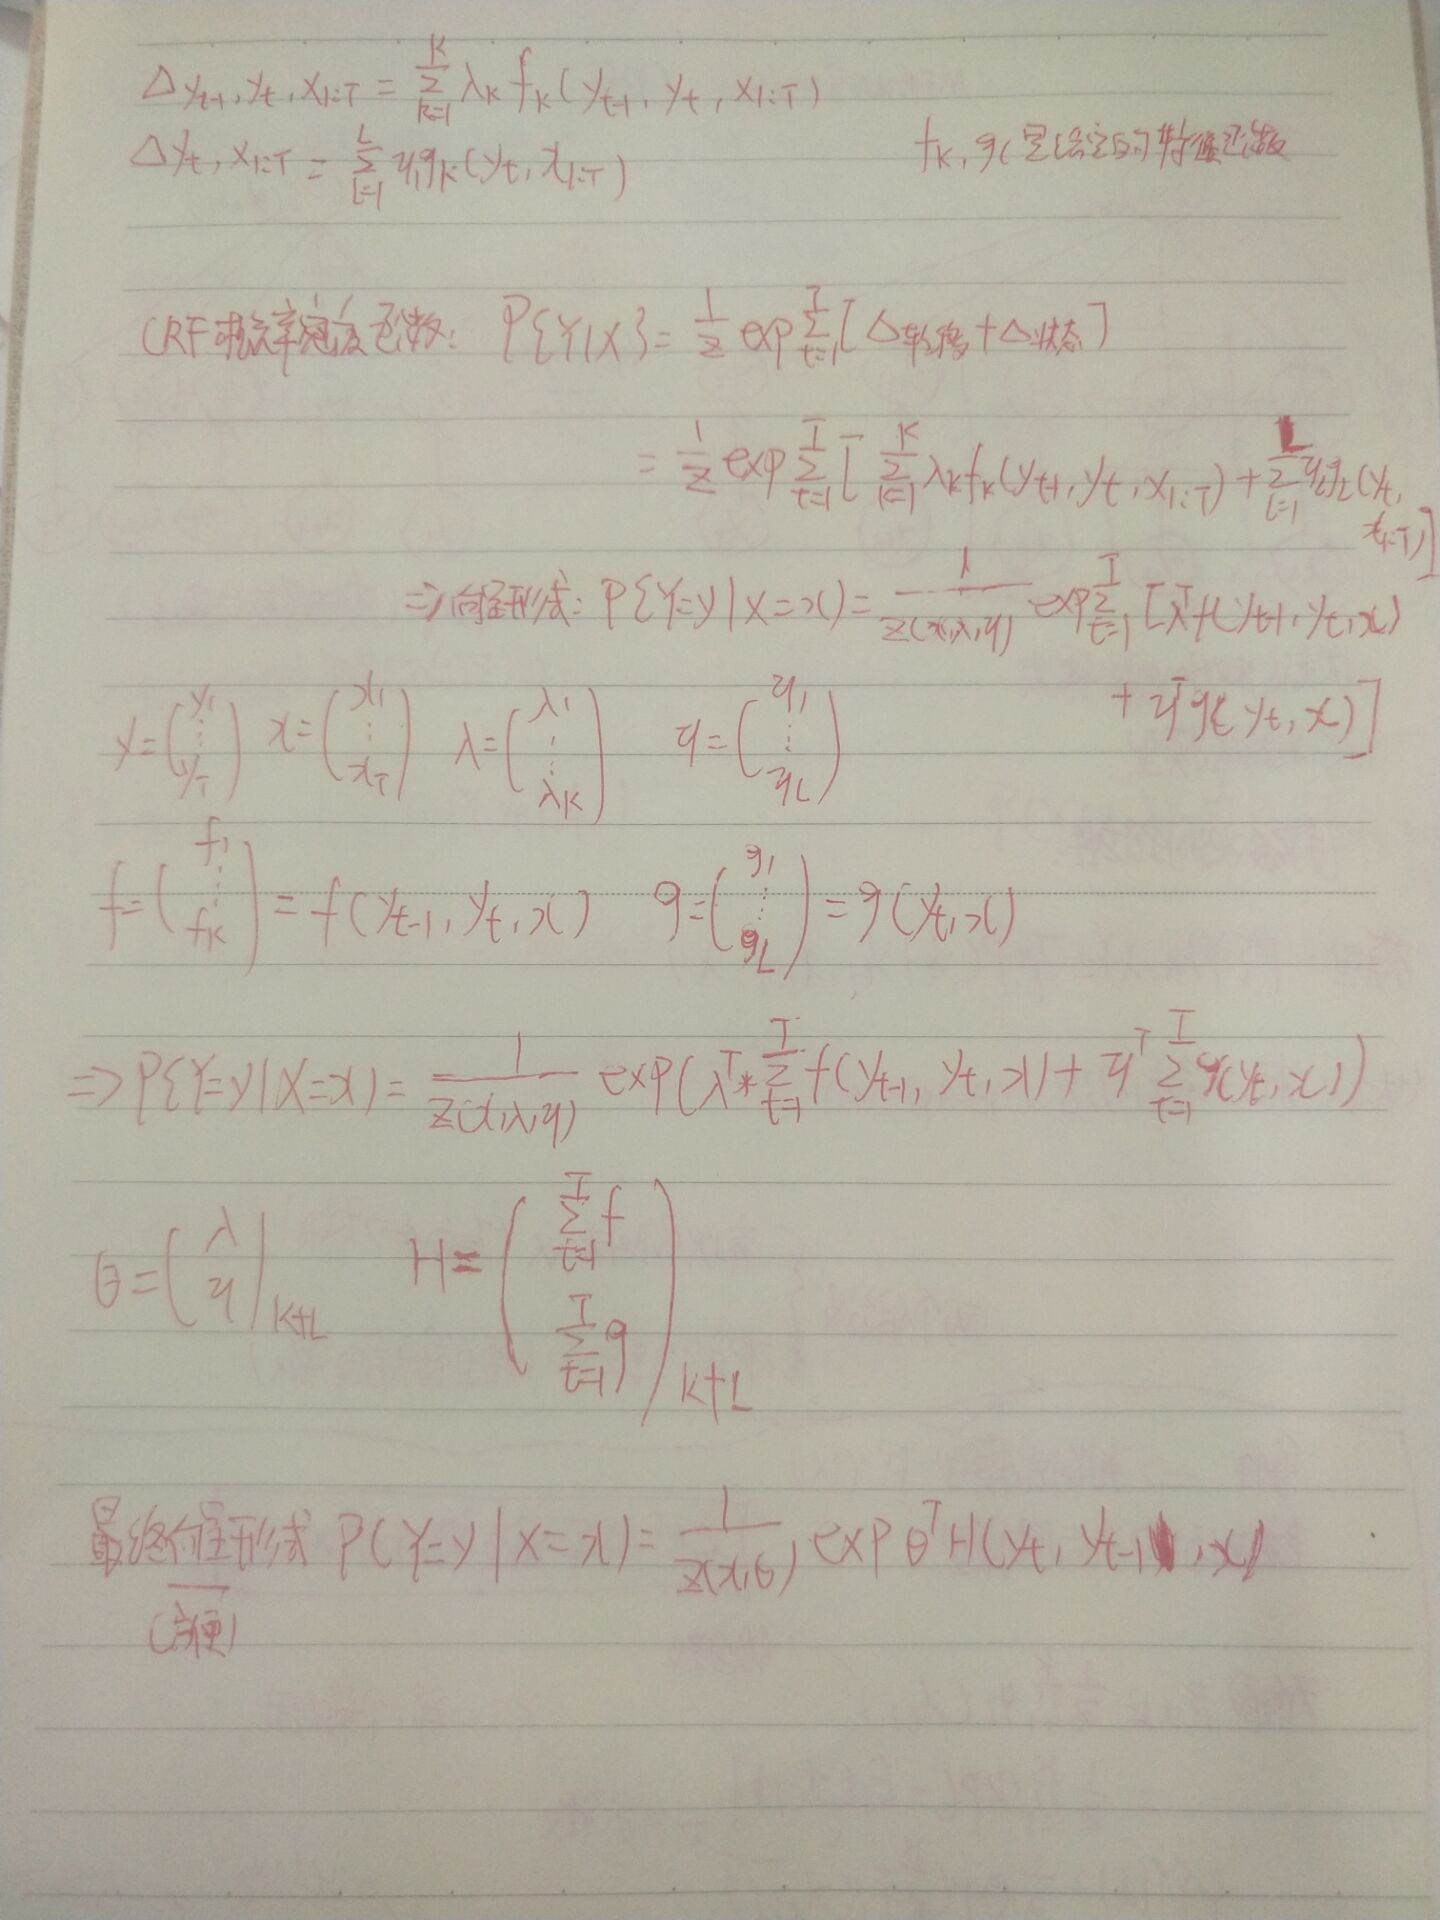 Δyt-1, yt, x1:T = Σ(k=1→K) λk fk(yt-1, yt, x1:T)
Δyt, x1:T = Σ(l=1→L) ηl gk(yt, x1:T)
fk, gl是给定的特征函数
CRF概率密度函数: P{Y|X} = 1/Z exp Σ(t=1→T) [Δ转移 + Δ状态]
= 1/Z exp Σ(t=1→T) [Σ(k=1→K) λk fk(yt-1, yt, x1:T) + Σ(l=1→L) ηL gL(yt, x1:T)]
⇒向量形式: P{Y=y|X=x) = 1/Z(x,λ,η) exp Σ(t=1→T) [λᵀf(yt-1, yt, x)
+ ηᵀg(yt, x)]
y = (y1 ⋮ yT) x = (x1 ⋮ xT) λ = (λ1 ⋮ λK) η = (η1 ⋮ ηL)
f = (f1 ⋮ fK) = f(yt-1, yt, x) g = (g1 ⋮ gL) = g(yt, x)
⇒ P{Y=y|X=x) = 1/Z(x,λ,η) exp(λᵀ * Σ(t=1→T) f(yt-1, yt, x) + ηᵀ Σ(t=1→T) g(yt, x))
θ = (λ η)K+L H = (Σ(t=1→T) f Σ(t=1→T) g)K+L
最终向量形式 P(Y=y|X=x) = 1/Z(x,θ) exp θᵀH(yt, yt-1, x)
(方便)